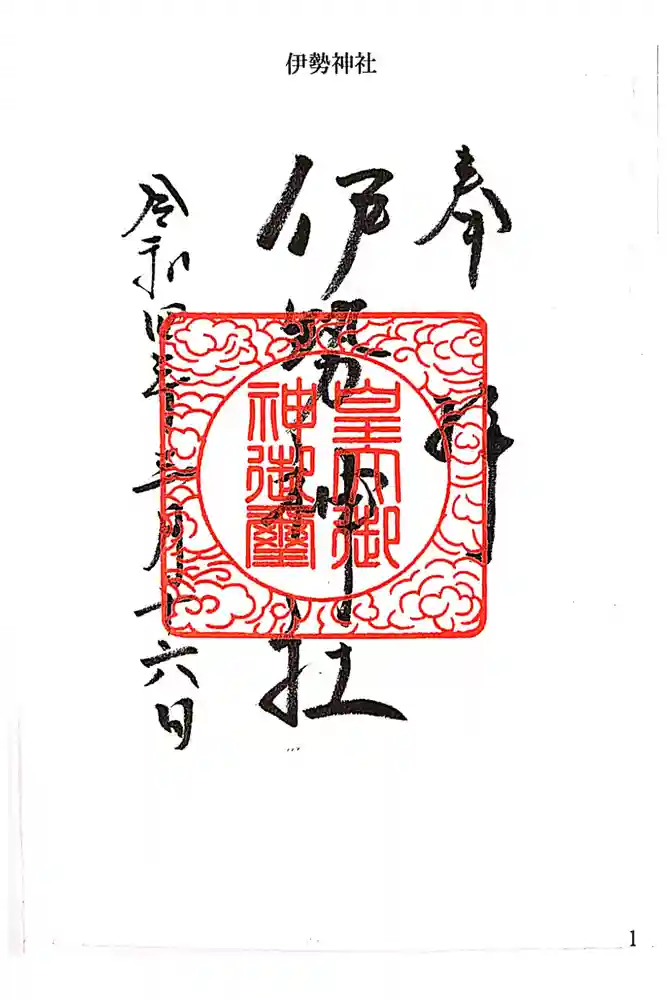 伊勢神社
奉拝
伊勢神社
令和四年十二月十六日
皇大御
神御璽
1